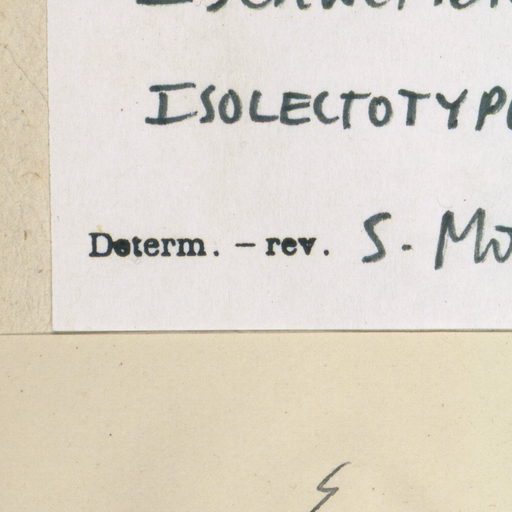 ISOLECTOTYPE
Determ. – rev. S. Mo